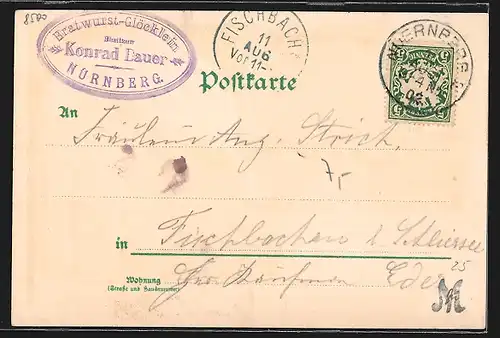 8500
Bratwurst-Glöcklein
Besitzer
Konrad Bauer
NÜRNBERG.
FISCHBACH
11
AUG
Vor 11-
NUERNBERG
02
BAYERN
5 5
Postkarte
An
Fräulein Aug. Strich,
7,-
in Fischbachau b. Schliersee
Wohnung
(Straße und Hausnummer)
Kaufmann Eder
25
M